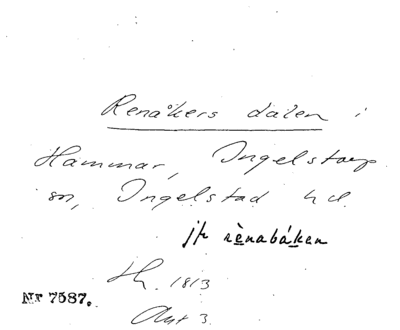 Renåkers dalen i
Hammar, Ingelstorp
sn, Ingelstad hd.
jfr rènabáken
Hh. 1813
Akt 3.
Nr 7587.